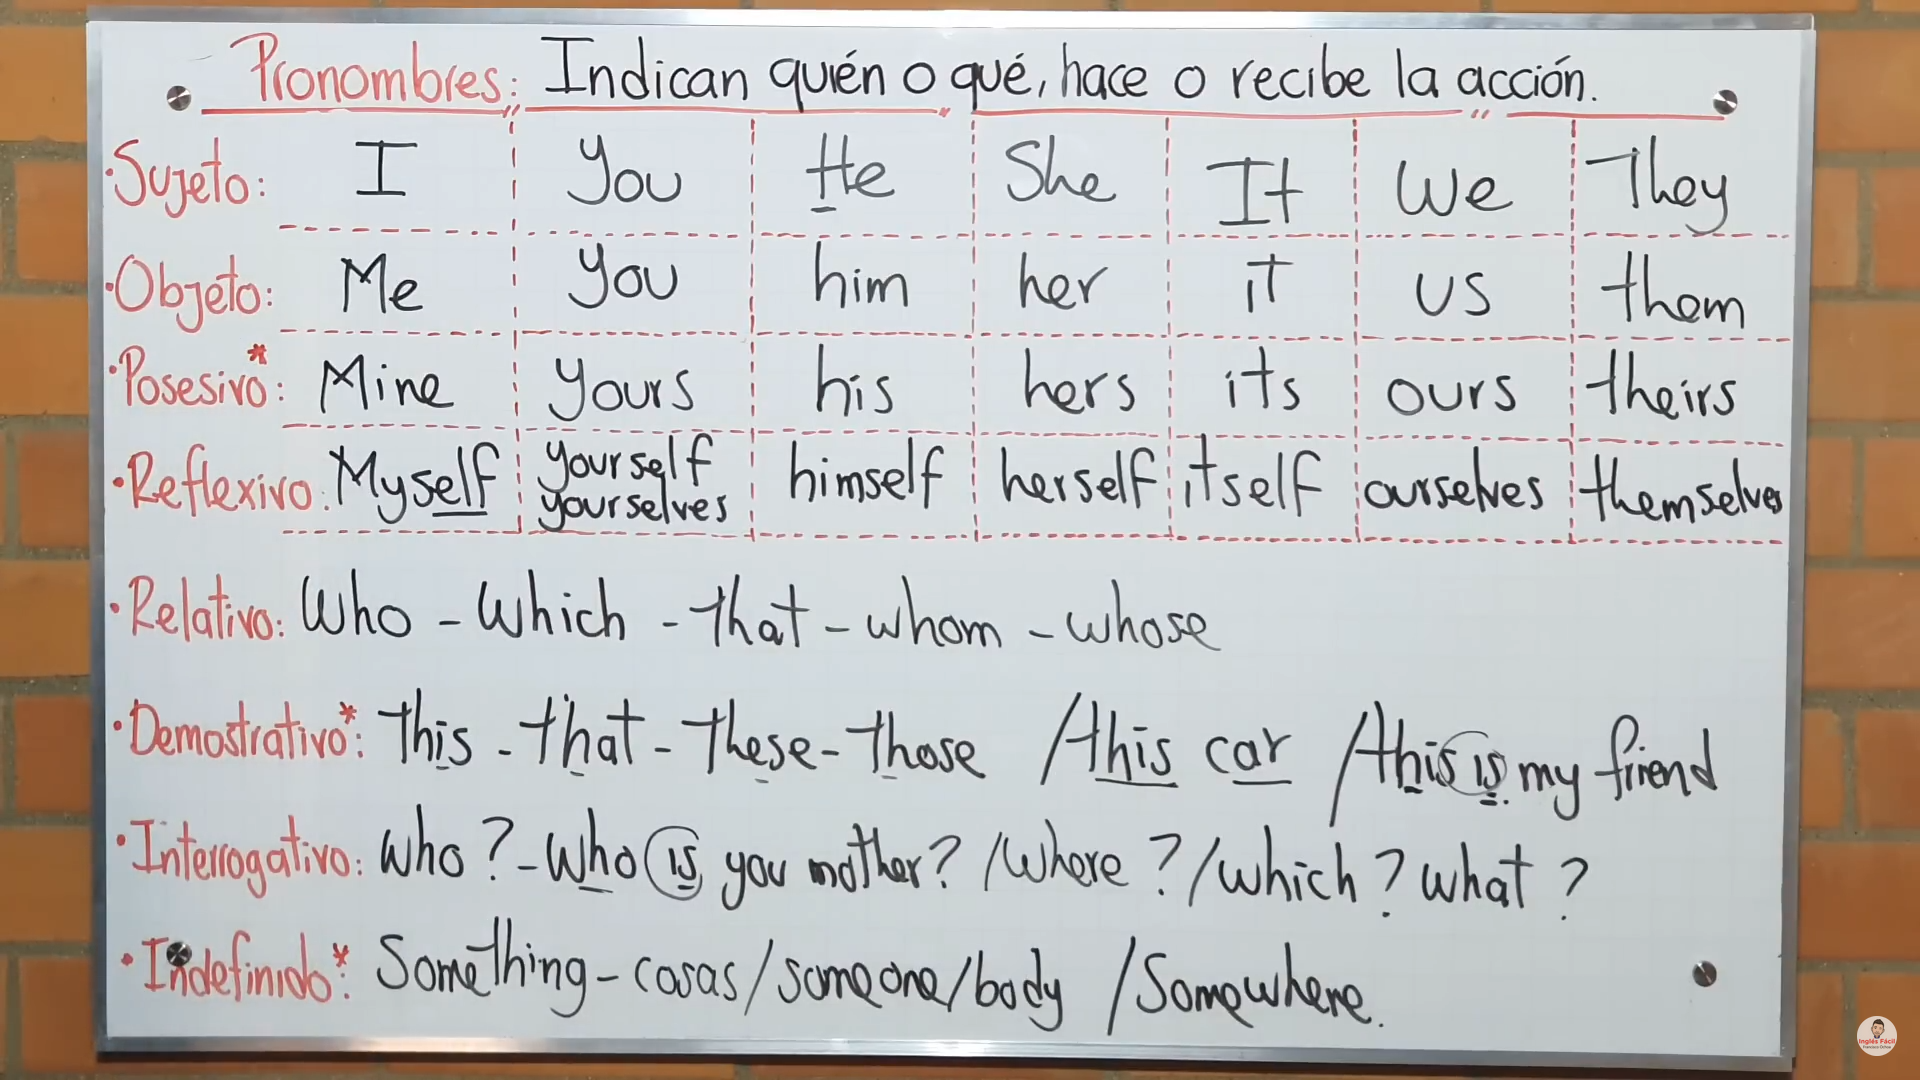 Pronombres: Indican quién o qué, hace o recibe la acción.
·Sujeto: I You He She It We They
·Objeto: Me you him her it us them
·Posesivo*: Mine yours his hers its ours theirs
·Reflexivo: Myself yourself yourselves himself herself itself ourselves themselves
·Relativo: Who - Which - that - whom - whose
·Demostrativo*: this - that - these - those /this car /this is my friend
·Interrogativo: who? - who is you mother? /where? /which? what?
·Indefinido*: Something - cosas / someone/body /Somewhere.
Inglés Fácil
Francisco Ochoa